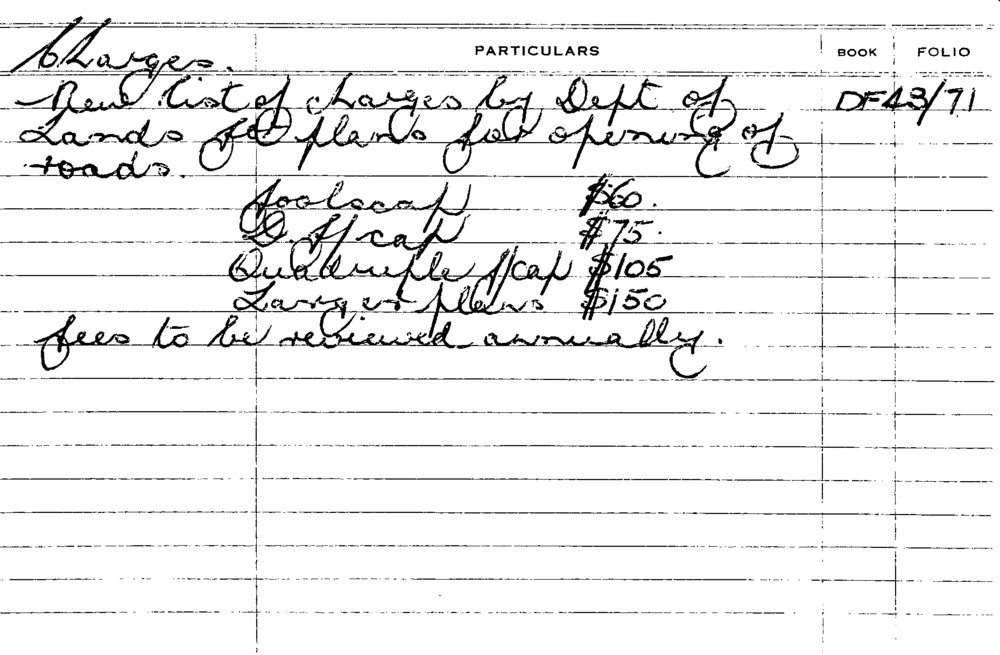 Charges. PARTICULARS BOOK FOLIO
New list of charges by Dept of DF43/71
Lands for plans for opening of
roads.
foolscap $60.
D. f/cap $75.
Quadruple f/cap $105
Larger plans $150
fees to be reviewed annually.